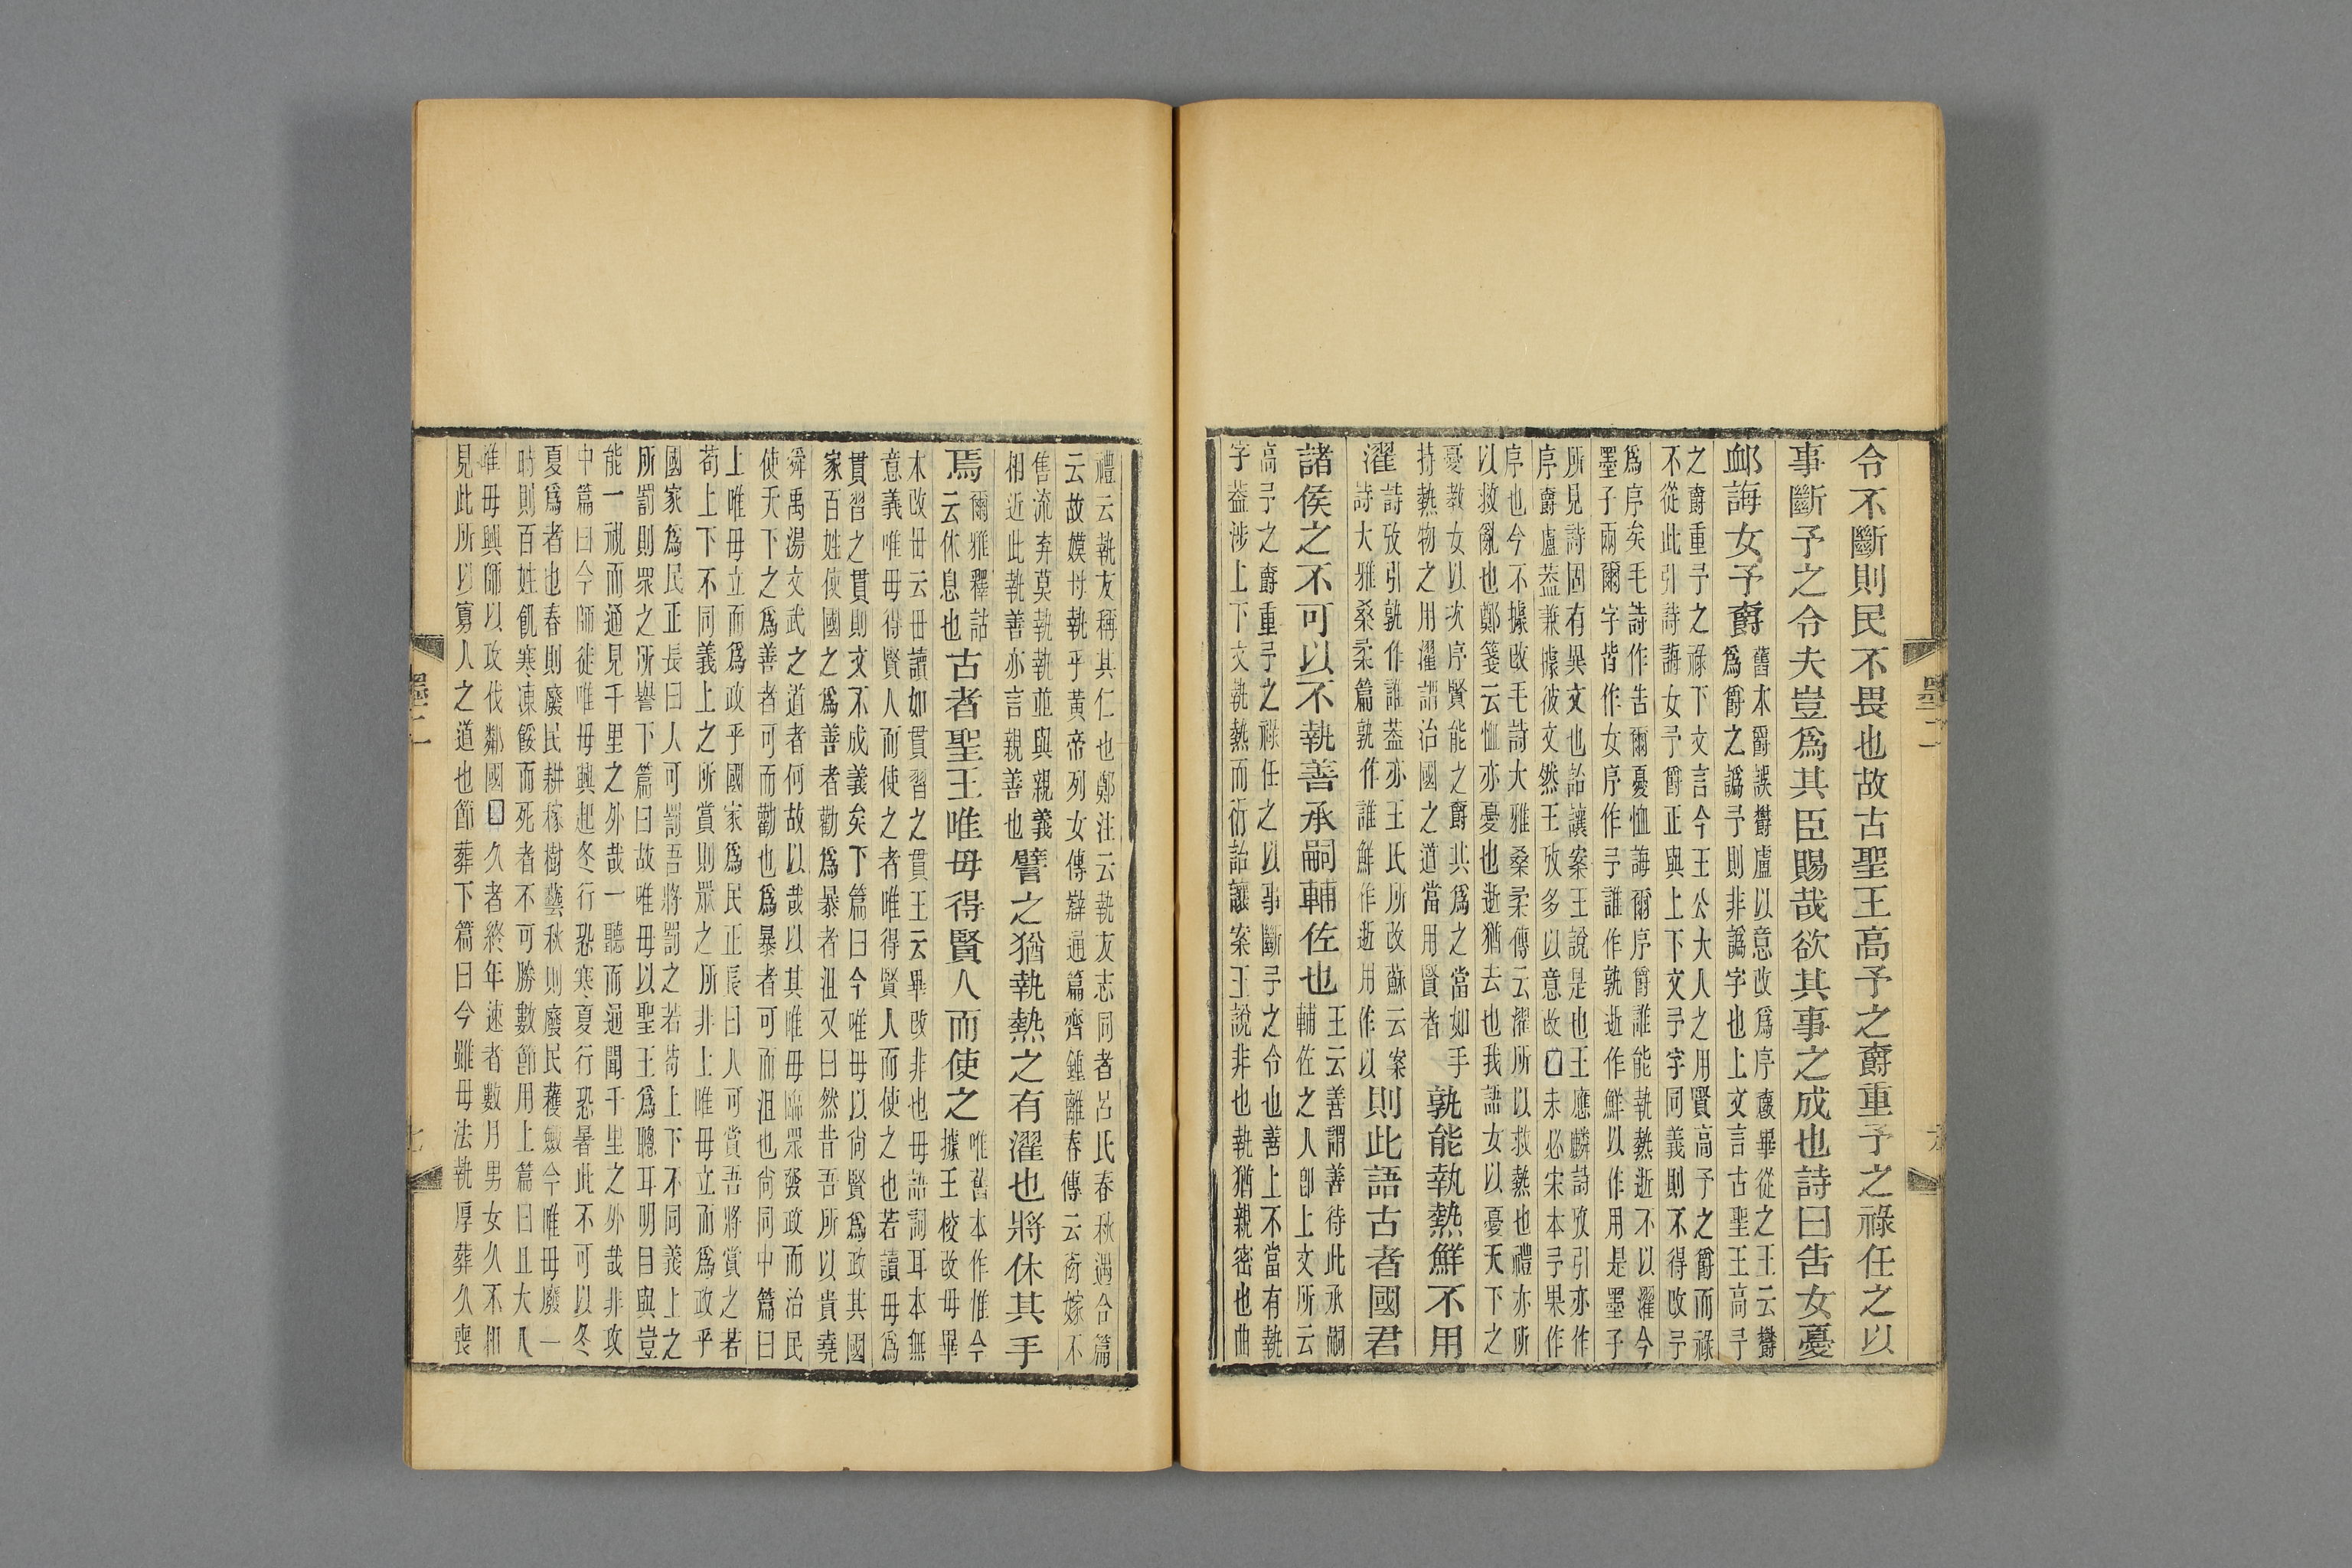 墨二
六
令不斷則民不畏也故古聖王高予之爵重予之祿任之以
事斷予之令夫豈爲其臣賜哉欲其事之成也詩曰告女憂
卹誨女予爵
舊本爵誤欝盧以意改爲序爵畢從之王云欝
爲爵之譌予則非譌字也上文言古聖王高予
之爵重予之祿下文言今王公大人之用賢高予之爵而祿
不從此引詩誨女予爵正與上下文予字同義則不得改予
爲序矣毛詩作告爾憂恤誨爾序爵誰能執熱逝不以濯今
墨子兩爾字皆作女序作予誰作孰逝作鮮以作用是墨子
所見詩固有異文也詒讓案王說是也王應麟詩攷引亦作
序爵盧葢兼據彼文然王攷多以意改未必宋本予果作
序也今不據改毛詩大雅桑柔傳云濯所以救熱也禮亦所
以救亂也鄭箋云恤亦憂也逝猶去也我語女以憂天下之
憂教女以次序賢能之爵其爲之當如手
持熱物之用濯謂治國之道當用賢者
孰能執熱鮮不用
濯
詩攷引孰作誰葢亦王氏所改蘇云案
詩大雅桑柔篇孰作誰鮮作逝用作以
則此語古者國君
諸侯之不可以不執善承嗣輔佐也
王云善謂善待此承嗣
輔佐之人卽上文所云
高予之爵重予之祿任之以事斷予之令也善上不當有執
字葢涉上下文執熱而衍詒讓案王說非也執猶親密也曲
禮云執友稱其仁也鄭注云執友志同者呂氏春秋遇合篇
云故嫫母執乎黃帝列女傳辯通篇齊鍾離春傳云衒嫁不
售流弃莫執執並與親義
相近此執善亦言親善也
譬之猶執熱之有濯也將休其手
焉
爾雅釋詁
云休息也
古者聖王唯毋得賢人而使之
唯舊本作惟今
據王校改毋畢
本改毌云毌讀如貫習之貫王云畢改非也毋語詞耳本無
意義唯毋得賢人而使之者唯得賢人而使之也若讀毋爲
貫習之貫則文不成義矣下篇曰今唯毋以尙賢爲政其國
家百姓使國之爲善者勸爲暴者沮又曰然昔吾所以貴堯
舜禹湯文武之道者何故以哉以其唯毋臨眾發政而治民
使天下之爲善者可而勸也爲暴者可而沮也尙同中篇曰
上唯毋立而爲政乎國家爲民正長曰人可賞吾將賞之若
苟上下不同義上之所賞則眾之所非上唯毋立而爲政乎
國家爲民正長曰人可罰吾將罰之若苟上下不同義上之
所罰則眾之所譽下篇曰故唯毋以聖王爲聰耳明目與豈
能一視而通見千里之外哉一聽而通聞千里之外哉非攻
中篇曰今師徒唯毋興起冬行恐寒夏行恐暑此不可以冬
夏爲者也春則廢民耕稼樹藝秋則廢民穫斂今唯毋廢一
時則百姓飢寒凍餒而死者不可勝數節用上篇曰且大人
唯毋興師以攻伐鄰國久者終年速者數月男女久不相
見此所以寡人之道也節葬下篇曰今雖毋法執厚葬久喪
墨二
七